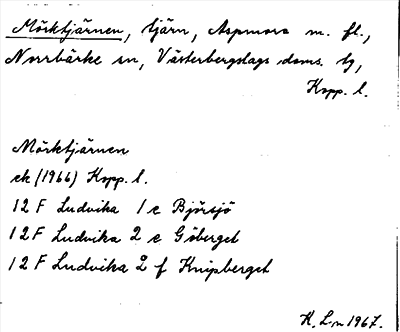 Mörktjärnen, tjärn, Aspmora m. fl.,
Norrbärke sn, Västerbergslags doms. tg,
Kopp. l.
Mörktjärnen
ek (1966) Kopp. l.
12 F Ludvika 1 e Björsjö
12 F Ludvika 2 e Göberget
12 F Ludvika 2 f Knipberget
K. L:n 1967.